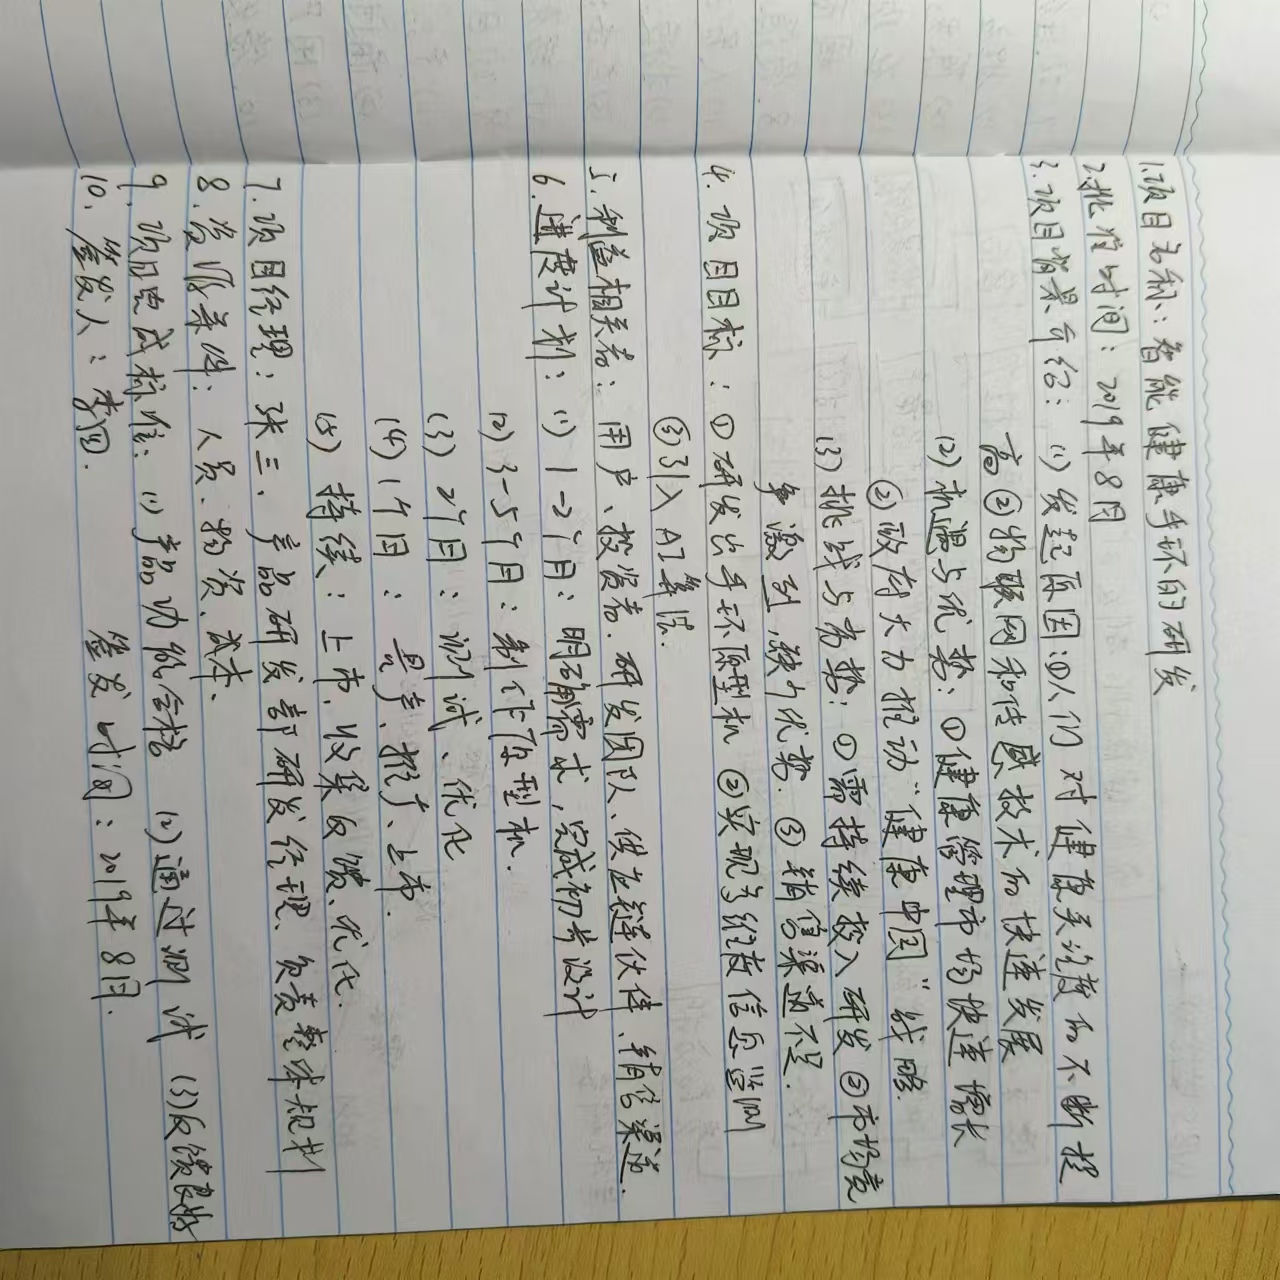 1.项目名称:智能健康手环的研发
2.批准时间:2019年8月
3.项目背景介绍:(1)发起原因:①人们对健康关注度的不断提
高②物联网和传感技术的快速发展
(2)机遇与优势:①健康管理市场快速增长
②政府大力推动“健康中国”战略.
(3)挑战与劣势:①需持续投入研发②市场竞
争激烈,缺少优势.③销售渠道不足.
4.项目目标:①研发出手环原型机②实现多维度信息监测
③引入AI算法.
5.利益相关者:用户、投资者.研发团队、供应链伙伴、销售渠道.
6.进度计划:(1)1-2个月:明确需求,完成初步设计
(2)3-5个月:制作原型机.
(3)2个月:测试、优化
(4)1个月:量产、推广、上市.
(5)持续:上市.收集反馈、优化.
7.项目经理:张三.产品研发部研发经理、负责整体规划
8.资源条件:人员、物资、成本.
9.项目完成标准:(1)产品功能合格(2)通过测试(3)反馈良好
10.签发人:李四.签发时间:2019年8月.